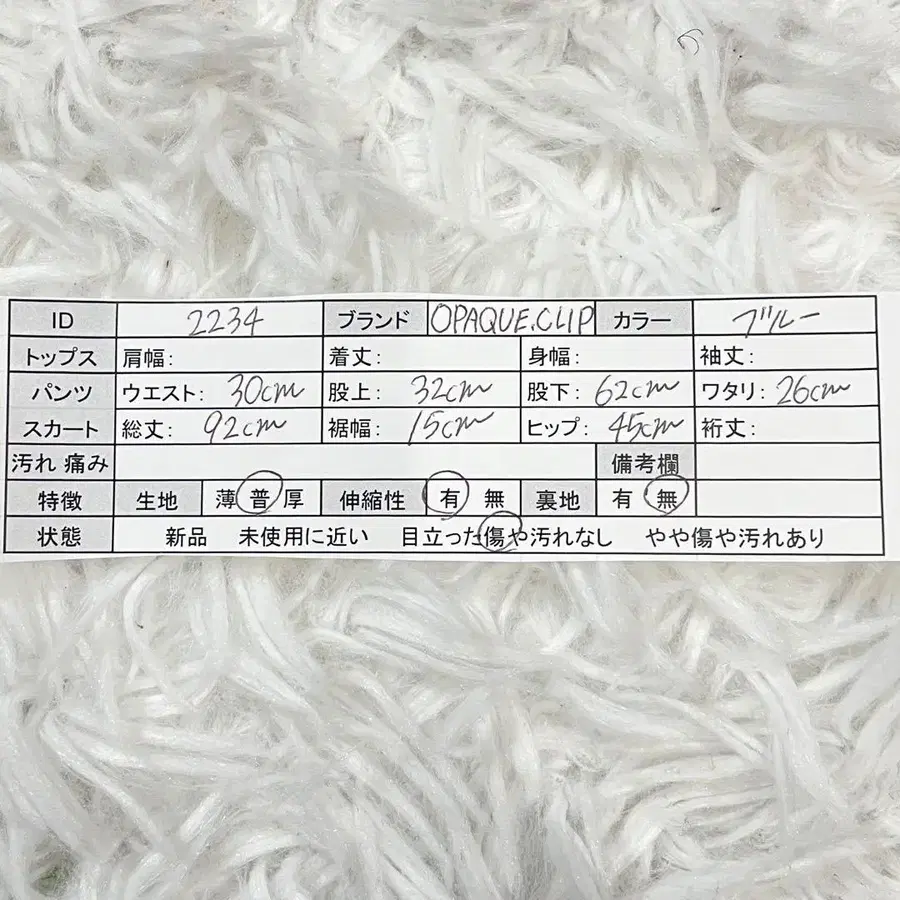 ID 2234 ブランド OPAQUE.CLIP カラー ブルー
トップス 肩幅: 着丈: 身幅: 袖丈:
パンツ ウエスト: 30cm 股上: 32cm 股下: 62cm ワタリ: 26cm
スカート 総丈: 92cm 裾幅: 15cm ヒップ: 45cm 裄丈:
汚れ 痛み 備考欄
特徴 生地 薄 普 厚 伸縮性 有 無 裏地 有 無
状態 新品 未使用に近い 目立った傷や汚れなし やや傷や汚れあり